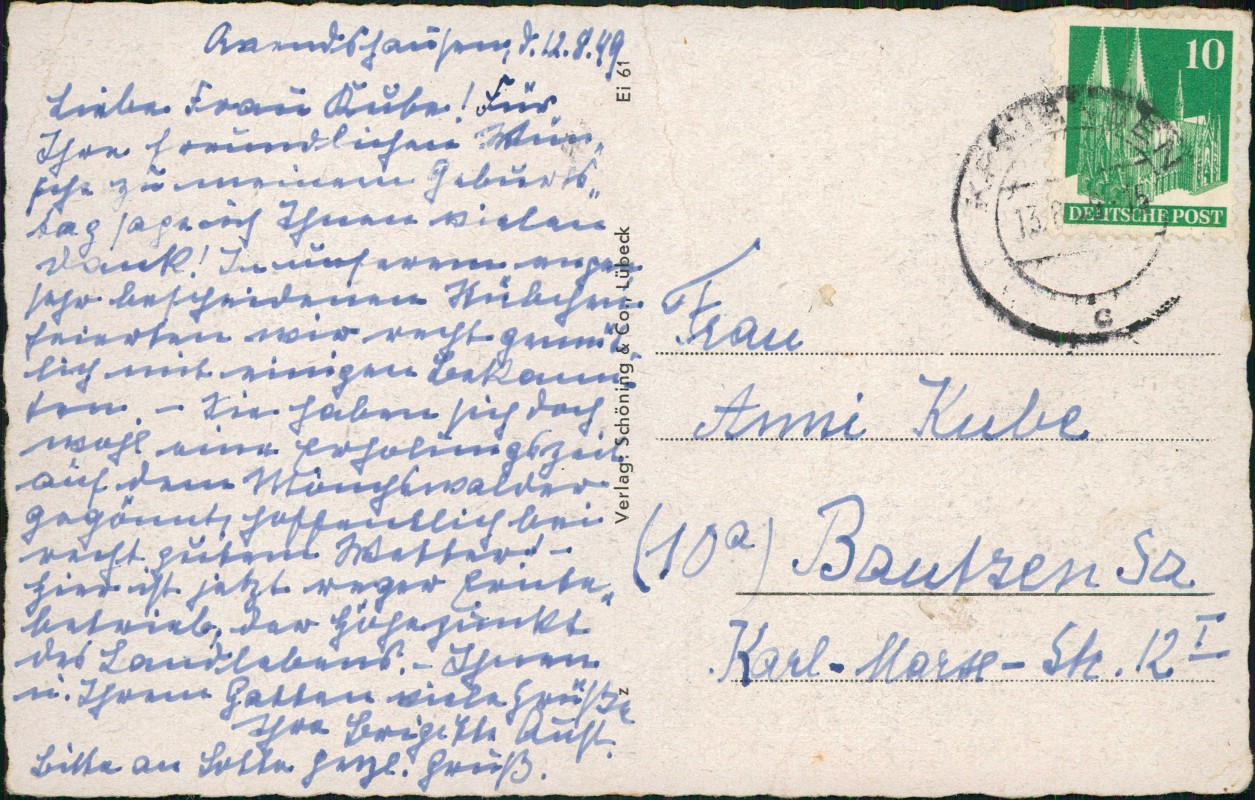 Avendshausen, d. 12.8.49
Liebe Frau Kube! Für
Ihre freundlichen Wün-
sche zu meinem Geburts-
tag sage ich Ihnen vielen
Dank! In unserem engen
sehr bescheidenen Stübchen
feierten wir recht gemüt-
lich mit einigen Bekann-
ten. – Sie haben sich doch
wohl eine Erholungszeit
auf dem Mönchswalder
gegönnt, hoffentlich bei
recht gutem Wetter! –
Hier ist jetzt reger Ernte-
betrieb, der Höhepunkt
des Landlebens. – Ihnen
u. Ihrem Gatten viele Grüße
Ihre Brigitte Aust.
Bitte an Lotte herzl. Gruß.
Verlag: Schöning & Co., Lübeck
Ei 61
z
10
DEUTSCHE POST
13.8.
c
Frau
Anni Kube
(10a) Bautzen Sa
Karl-Marx-Str. 12 I